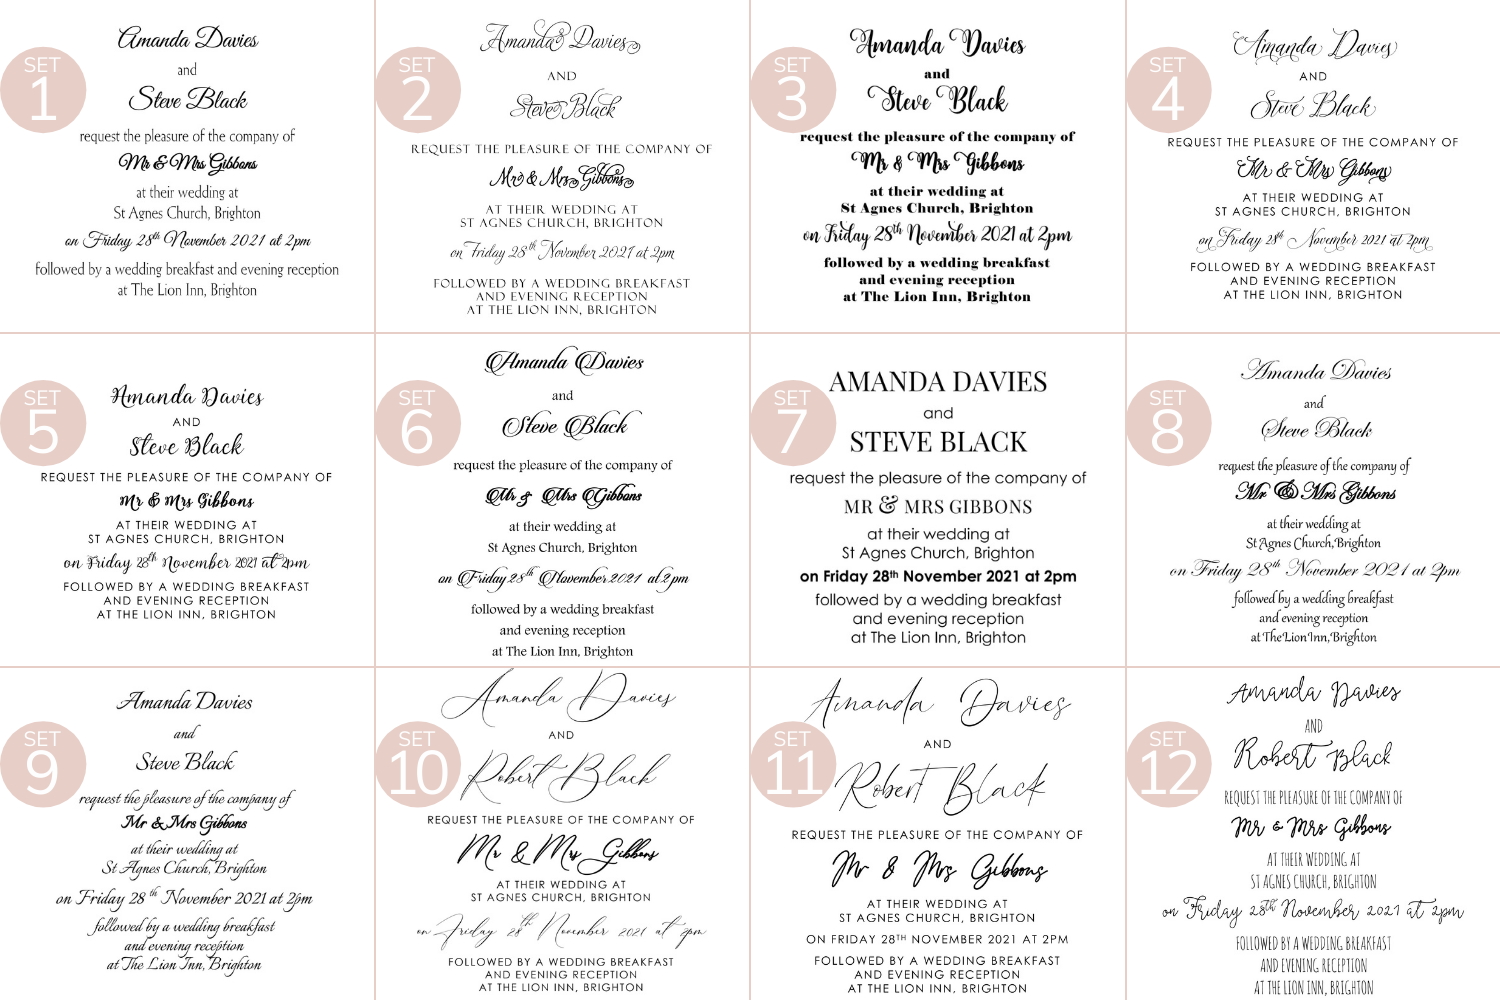 SET
1
Amanda Davies
and
Steve Black
request the pleasure of the company of
Mr & Mrs Gibbons
at their wedding at
St Agnes Church, Brighton
on Friday 28th November 2021 at 2pm
followed by a wedding breakfast and evening reception
at The Lion Inn, Brighton
SET
2
Amanda Davies
AND
Steve Black
REQUEST THE PLEASURE OF THE COMPANY OF
Mr & Mrs Gibbons
AT THEIR WEDDING AT
ST AGNES CHURCH, BRIGHTON
on Friday 28th November 2021 at 2pm
FOLLOWED BY A WEDDING BREAKFAST
AND EVENING RECEPTION
AT THE LION INN, BRIGHTON
SET
3
Amanda Davies
and
Steve Black
request the pleasure of the company of
Mr & Mrs Gibbons
at their wedding at
St Agnes Church, Brighton
on Friday 28th November 2021 at 2pm
followed by a wedding breakfast
and evening reception
at The Lion Inn, Brighton
SET
4
Amanda Davies
AND
Steve Black
REQUEST THE PLEASURE OF THE COMPANY OF
Mr & Mrs Gibbons
AT THEIR WEDDING AT
ST AGNES CHURCH, BRIGHTON
on Friday 28th November 2021 at 2pm
FOLLOWED BY A WEDDING BREAKFAST
AND EVENING RECEPTION
AT THE LION INN, BRIGHTON
SET
5
Amanda Davies
AND
Steve Black
REQUEST THE PLEASURE OF THE COMPANY OF
Mr & Mrs Gibbons
AT THEIR WEDDING AT
ST AGNES CHURCH, BRIGHTON
on Friday 28th November 2021 at 2pm
FOLLOWED BY A WEDDING BREAKFAST
AND EVENING RECEPTION
AT THE LION INN, BRIGHTON
SET
6
Amanda Davies
and
Steve Black
request the pleasure of the company of
Mr & Mrs Gibbons
at their wedding at
St Agnes Church, Brighton
on Friday 28th November 2021 at 2pm
followed by a wedding breakfast
and evening reception
at The Lion Inn, Brighton
SET
7
AMANDA DAVIES
and
STEVE BLACK
request the pleasure of the company of
MR & MRS GIBBONS
at their wedding at
St Agnes Church, Brighton
on Friday 28th November 2021 at 2pm
followed by a wedding breakfast
and evening reception
at The Lion Inn, Brighton
SET
8
Amanda Davies
and
Steve Black
request the pleasure of the company of
Mr & Mrs Gibbons
at their wedding at
St Agnes Church, Brighton
on Friday 28th November 2021 at 2pm
followed by a wedding breakfast
and evening reception
at The Lion Inn, Brighton
SET
9
Amanda Davies
and
Steve Black
request the pleasure of the company of
Mr & Mrs Gibbons
at their wedding at
St Agnes Church, Brighton
on Friday 28th November 2021 at 2pm
followed by a wedding breakfast
and evening reception
at The Lion Inn, Brighton
SET
10
Amanda Davies
AND
Robert Black
REQUEST THE PLEASURE OF THE COMPANY OF
Mr & Mrs Gibbons
AT THEIR WEDDING AT
ST AGNES CHURCH, BRIGHTON
on Friday 28th November 2021 at 2pm
FOLLOWED BY A WEDDING BREAKFAST
AND EVENING RECEPTION
AT THE LION INN, BRIGHTON
SET
11
Amanda Davies
AND
Robert Black
REQUEST THE PLEASURE OF THE COMPANY OF
Mr & Mrs Gibbons
AT THEIR WEDDING AT
ST AGNES CHURCH, BRIGHTON
ON FRIDAY 28TH NOVEMBER 2021 AT 2PM
FOLLOWED BY A WEDDING BREAKFAST
AND EVENING RECEPTION
AT THE LION INN, BRIGHTON
SET
12
Amanda Davies
AND
Robert Black
REQUEST THE PLEASURE OF THE COMPANY OF
Mr & Mrs Gibbons
AT THEIR WEDDING AT
ST AGNES CHURCH, BRIGHTON
on Friday 28th November 2021 at 2pm
FOLLOWED BY A WEDDING BREAKFAST
AND EVENING RECEPTION
AT THE LION INN, BRIGHTON